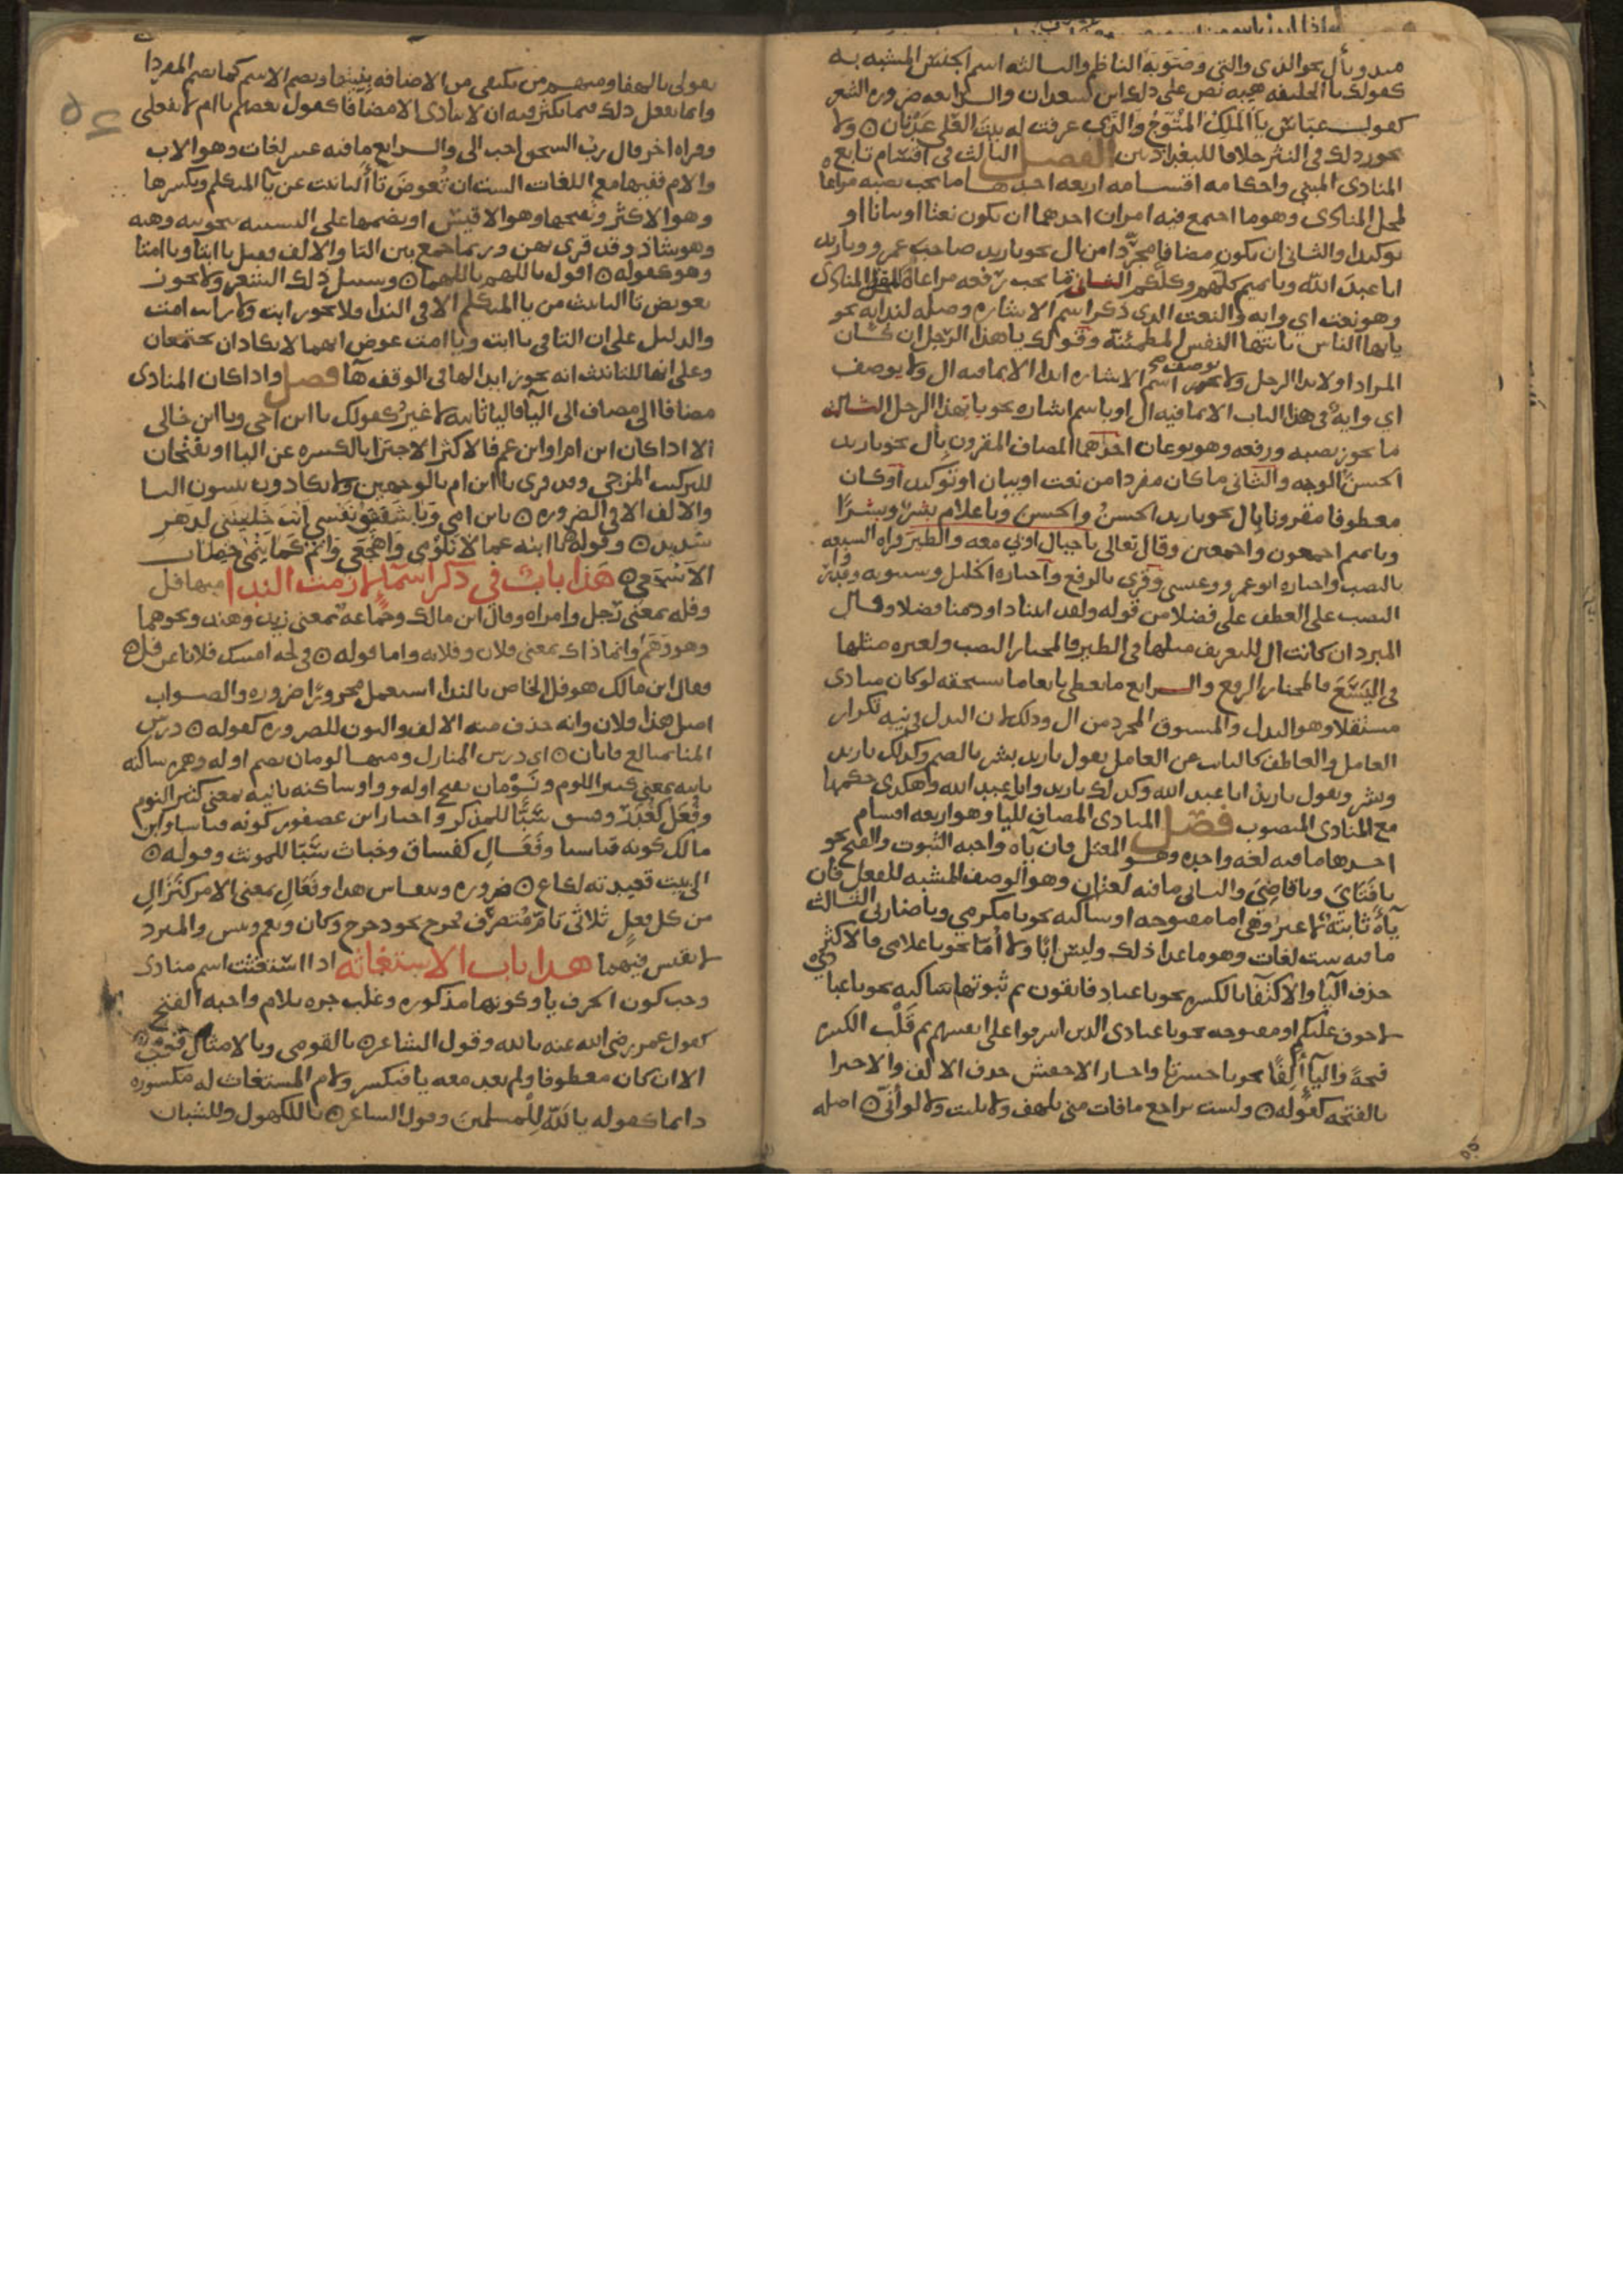 مبدو بأل نحو الذي والتي وصَوّبه الناظم والثالثه اسم الجنس المشبه به
كقولك يا الخليفه هيبه نص على ذلك ابن سعدان والرابعه ضروره الشعر
كقوله عباس يا المَلِكُ المُتَوَّجُ والذي عرفت له بيتَ العُلى عدنان ۞ ولا
يجوز ذلك في النثر خلافا للبغداديين الفصل الثالث في اقسام تابع
المنادى المبني واحكامه اقسامه اربعه احدها ما يجب نصبه مراعاة
لمحل المنادى وهو ما اجتمع فيه امران احدهما ان يكون نعتا او بيانا او
توكيدا والثاني ان يكون مضافا مجردا من ال نحو يا زيد صاحب عمرو ويا زيد
ابا عبدَ الله ويا تميم كلهم وكلكم الثاني ما يجب رفعه مراعاة للفظ المنادى
وهو نعت اي وايه والنعت الذي ذكر اسم الاشاره وصله لندايه نحو
يايها الناس يايتها النفس المطمئنة وقولك يا هذا الرجل ان كان
المراد اولا ندا الرجل ولا يوصف اسم الاشاره ابدا الا بما فيه ال ولا يوصف
اي وايه في هذا الباب الا بما فيه ال او باسم اشاره نحو يا يهذا الرجل الثالث
ما يجوز نصبه ورفعه وهو نوعان احدهما المضاف المقرون بأل نحو يا زيد
الحسنُ الوجه والثاني ما كان مفردا من نعت او بيان او توكيد او كان
معطوفا مقرونا بال نحو يا زيد الحسنُ والحسن ويا غلام بشرٌ وبشرًا
ويا تميم اجمعون واجمعين وقال تعالى يا جبال اوبي معه والطيرَ قراه السبعه
بالنصب واختاره ابو عمرو وعيسى وقري بالرفع واختاره الخليل وسيبويه وقدروا
النصب على العطف على فضلا من قوله ولقد اتينا داود منا فضلا وقال
المبرد ان كانت ال للتعريف مثلها في الطير فالمختار النصب ولغيره مثلها
في اليَسَع فالمختار الرفع والرابع ما يعطى تابعا ما يستحقه لو كان منادى
مستقلا وهو البدل والمنسوق المجرد من ال وذلك لان البدل في نيه تكرار
العامل والعاطف كالنايب عن العامل يقول يا زيد بشر بالضم وكذلك يا زيد
وبشر ويقول يا زيدُ ابا عبد الله وكذلك يا زيد وابا عبد الله وهكذى حكمها
مع المنادى المنصوب فصل المنادى المضاف للياء وهو اربعه اقسام
احدها ما فيه لغه واحده وهو المعتل فان يآه واجبه الثبوت والفتح نحو
يا فتايَ ويا قاضِيَ والثاني ما فيه لغتان وهو الوصف المشبه للفعل فان
يآهُ ثابتة لا غير وهي اما مفتوحه او ساكنه نحو يا مكرمي ويا ضاربي الثالث
ما فيه ست لغات وهو ما عدا ذلك وليس ابًا ولا أُمّا نحو يا غلامي فالاكثر فيه
حذف الياء والاكتفا بالكسره نحو يا عباد فاتقون ثم ثبوتها ساكنه نحو يا عبادي
لا خوف عليكم او مفتوحه نحو يا عبادي الذين اسرفوا على انفسهم ثم قَلْب الكسره
فتحةً والياء أَلِفًا نحو يا حسرتا واجاز الاخفش حذف الالف والاجترا
بالفتحه كقوله ۞ ولست براجع ما فات مني بلهف ولا بليت ولا لوأنّي ۞ اصله
بقولي يا لهفا ومنهم من يكتفي من الاضافه بنيتها ويضم الاسم كما يضم المفردا
وانما يفعل ذلك فيما يكثر فيه ان لا ينادى الا مضافا كقول بعضهم يا ام لا تفعلي
وقراه اخر قال ربُّ السجن احب الي والرابع ما فيه عشر لغات وهو الاب
والام ففيهما مع اللغات الست ان تُعوضَ تاءُ التانيث عن يا المتكلم وبكسرها
وهو الاكثر وبفتحها وهو الاقيَس او بضمها على التشبيه بنحو ثبه وهبه
وهو شاذ وقد قرى بهن وربما جمع بين التا والالف فقيل يا ابتا ويا امتا
وهو كقوله ۞ اقول يا اللهم يا اللهما ۞ وسبيل ذلك الشعر ولا يجوز
تعويض تا التانيث من يا المتكلم الا في الندا فلا يجوز ابت ولا رايت امت
والدليل على ان التا في يا ابت ويا امت عوض انهما لا يكادان يجتمعان
وعلى انها للتانيث انه يجوز ابدالها في الوقف هآ فصل واذا كان المنادى
مضافا الى مضاف الى اليآ فاليا ثابته لا غير كقولك يا ابن اخي ويا ابن خالي
الا اذا كان ابن ام او ابن عم فالاكثر الاجتزا بالكسره عن اليا او يفتحان
للتركيب المزجي وقد قرى يا ابن ام بالوجهين ولا يكادون يثبتون اليا
والالف الا في الضروره ۞ يابن امي ويا شقيق نفسي انت خليتني لدهر
شديد ۞ وقوله ۞ يا ابنه عما لا تلومي واهجعي وانم كما ينمى خضاب
الاشجعي ۞ هذا بابٌ في ذكر اسمآ لازمت الندا منها فل
وفله بمعنى رجل وامراه وقال ابن مالك وجماعه بمعنى زيد وهند ونحوهما
وهو وَهَم وانما ذاك بمعنى فلان وفلانه واما قوله ۞ في لجه امسك فلانا عن فل ۞
فقال ابن مالك هو فل الخاص بالندا استعمل مجرورًا ضروره والصواب
اصل هذا فلان وانه حذف منه الالف والنون للضروره كقوله ۞ درس
المنا بمتالع فابان ۞ اي درس المنازل ومنها لومان بضم اوله وهمزه ساكنه
ثانيه بمعنى كثير اللوم ونَوْمان بفتح اوله وواو ساكنه ثانيه بمعنى كثير النوم
وفُعَل كغُدَر وفسق سَبًّا للمذكر واختار ابن عصفور كونه قياسا وابن
مالك كونه قياسيا وفَعَالِ كفساق وخباث سَبّا للمونث وقوله ۞
الى بيت قعيدته لكاع ۞ ضروره وينقاس هذا وفَعَالِ بمعنى الامر كنَزَالِ
من كل فعلٍ ثلاثي تامّ مُتصرّف فخرج نحو دحرج وكان ونعم وبيس والمبرد
لا يقيس فيهما هذا باب الاستغاثه اذا استغثت اسم منادى
وجب كون الحرف يا وكونها مذكوره وغلب جره بلام واجبه الفتح
كقول عمر رضي الله عنه يا لله وقول الشاعر ۞ يا لقومي ويا لامثال قومي ۞
الا ان كان معطوفا ولم يعد معه يا فتكسر ولام المستغاث له مكسوره
دايما كقوله يا لَلّهِ لِلْمسلمين وقول الشاعر ۞ يا للكهول وللشبان